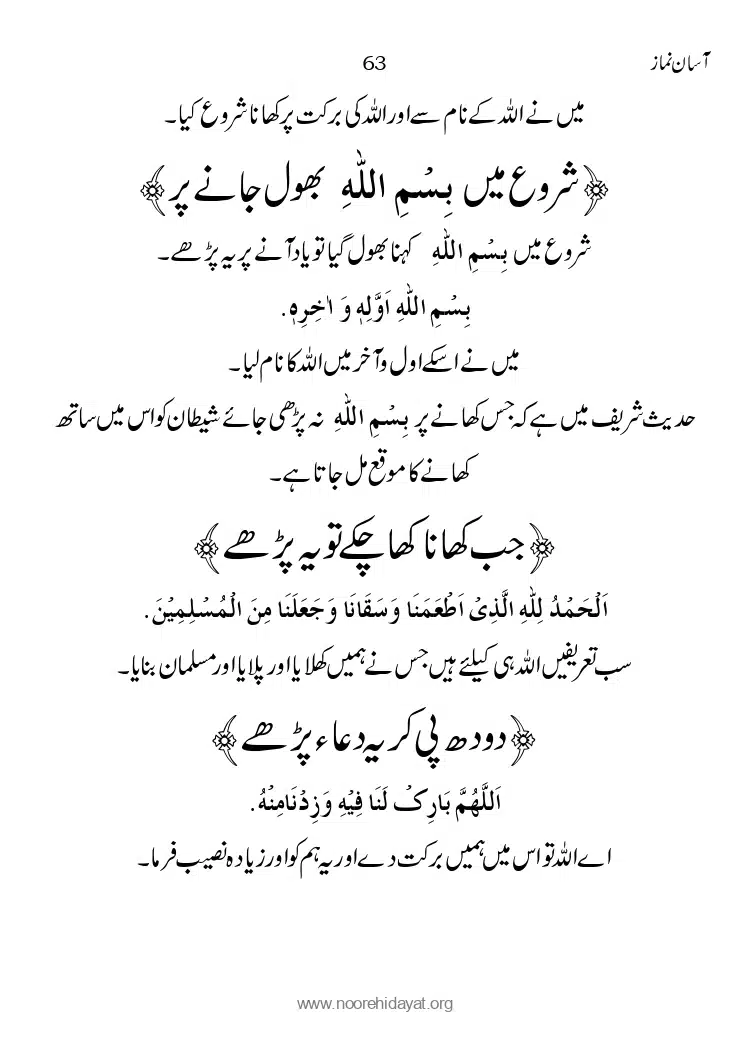 آسان نماز
63
میں نے اللہ کے نام سے اور اللہ کی برکت پر کھانا شروع کیا۔
﴿شروع میں بِسْمِ اللّٰہِ بھول جانے پر﴾
شروع میں بِسْمِ اللّٰہِ کہنا بھول گیا تو یاد آنے پر یہ پڑھے۔
بِسْمِ اللّٰہِ اَوَّلِہٖ وَ اٰخِرِہٖ.
میں نے اسکے اول و آخر میں اللہ کا نام لیا۔
حدیث شریف میں ہے کہ جس کھانے پر بِسْمِ اللّٰہِ نہ پڑھی جائے شیطان کو اس میں ساتھ
کھانے کا موقع مل جاتا ہے۔
﴿جب کھانا کھا چکے تو یہ پڑھے﴾
اَلْحَمْدُ لِلّٰہِ الَّذِیْ اَطْعَمَنَا وَسَقَانَا وَجَعَلَنَا مِنَ الْمُسْلِمِیْنَ.
سب تعریفیں اللہ ہی کیلئے ہیں جس نے ہمیں کھلایا اور پلایا اور مسلمان بنایا۔
﴿دودھ پی کر یہ دعاء پڑھے﴾
اَللَّھُمَّ بَارِکْ لَنَا فِیْہِ وَزِدْنَامِنْہُ.
اے اللہ تو اس میں ہمیں برکت دے اور یہ ہم کو اور زیادہ نصیب فرما۔
www.noorehidayat.org